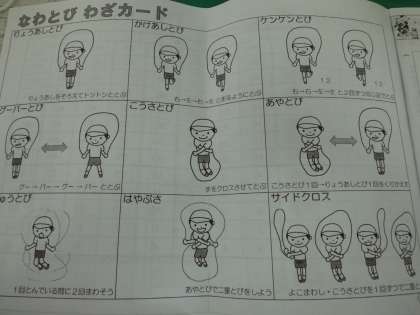 なわとび わざカード
りょうあしとび
かけあしとび
ケンケンとび
りょうあしをそろえてトントンととぶ
1 2
1 2
グーパーとび
こうさとび
あやとび
グー → パー → グー → パー ととぶ
手をクロスさせてとぶ
こうさとび1回→りょうあしとび1回をくりかえす
ゅうとび
はやぶさ
サイドクロス
1回とんでいる間に2回まわそう
あやとびで二重とびをしよう
よこまわし・こうさとびを1回ずつで二重と